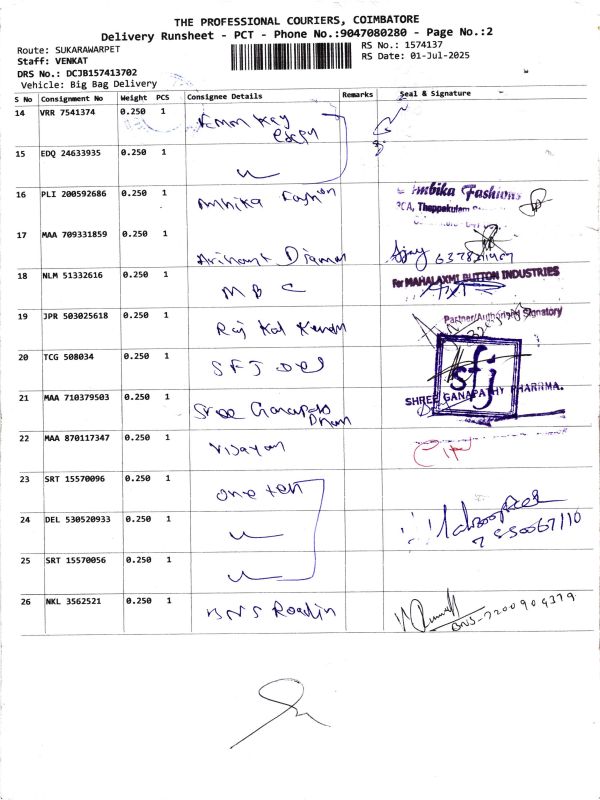 THE PROFESSIONAL COURIERS, COIMBATORE
Delivery Runsheet - PCT - Phone No.:9047080280 - Page No.:2
Route: SUKARAWARPET
RS No.: 1574137
Staff: VENKAT
RS Date: 01-Jul-2025
DRS No.: DCJB157413702
Vehicle: Big Bag Delivery
S No Consignment No Weight PCS Consignee Details Remarks Seal & Signature
14 VRR 7541374 0.250 1
15 EDQ 24633935 0.250 1
16 PLI 200592686 0.250 1 Ambika Fashion Ambika Fashions
Theppakulam
17 MAA 709331859 0.250 1 Arihant Ajay
18 NLM 51332616 0.250 1 M B C For MAHALAXMI BUTTON INDUSTRIES
Partner/Authorised Signatory
19 JPR 503025618 0.250 1 Raj Kal
20 TCG 508034 0.250 1 SFJ sfj
21 MAA 710379503 0.250 1 Sree Ganapathy SHREE GANAPATHY PHARRMA.
22 MAA 870117347 0.250 1 Vijayan
23 SRT 15570096 0.250 1 one ten
24 DEL 530520933 0.250 1
25 SRT 15570056 0.250 1
26 NKL 3562521 0.250 1 BNS BNS-7200904379